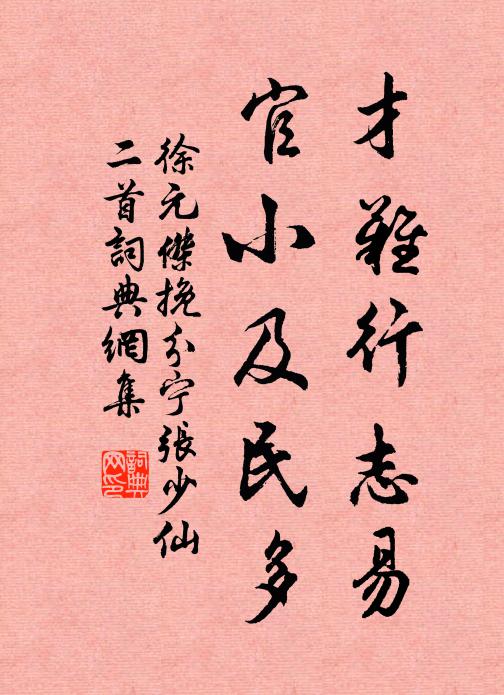 才難行志易
官小及民多
徐元傑挽分宁張少仙
二首詞典網集
詞典
网印